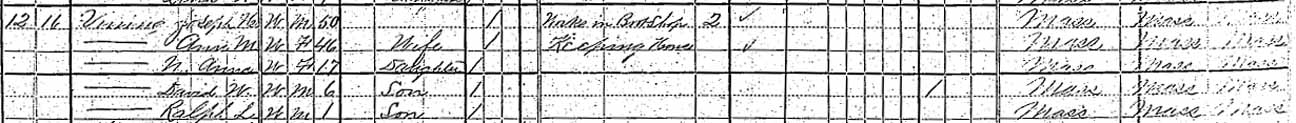 12 16 Vining Joseph W. W. M. 50 " 1 Works in Boot Shop 2 ✓ Mass Mass Mass
—— Ann M. W F 46 Wife 1 Keeping House ✓ Mass Mass Mass
—— N. Anna W. F 17 Daughter 1 Mass Mass Mass
—— David W. W. M 6 Son 1 1 Mass Mass Mass
—— Ralph L. W M 1 Son 1 Mass Mass Mass